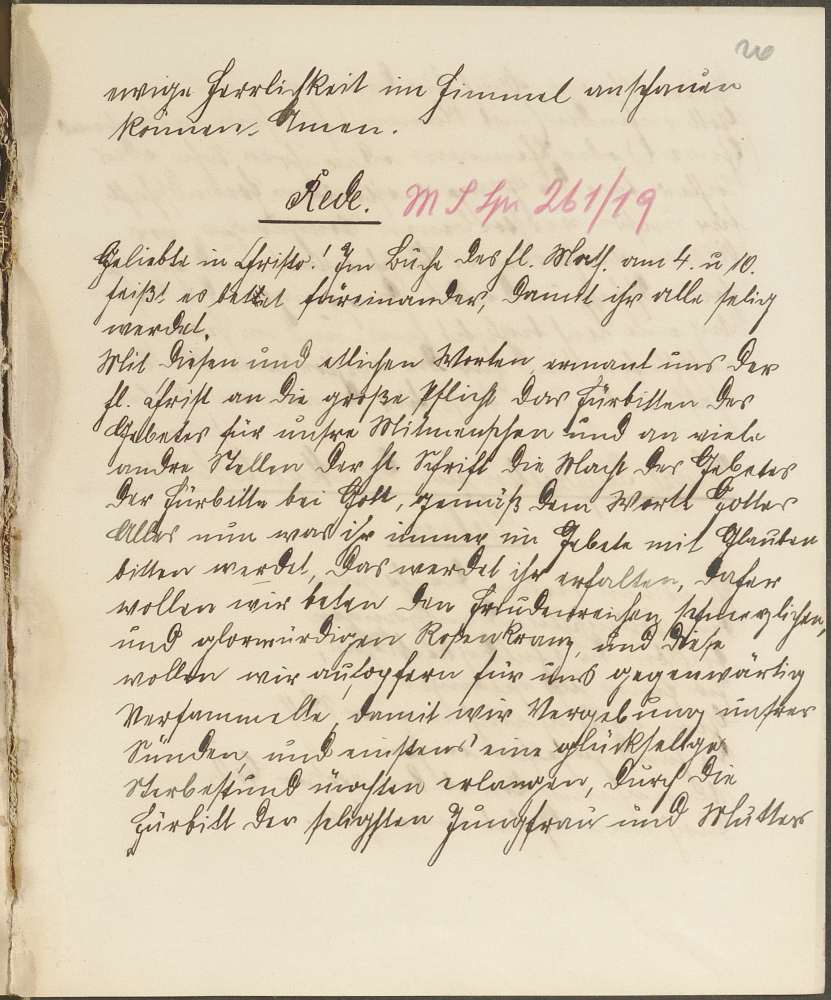 20
ewige Herrlichkeit im Himmel anschauen
können. Amen.
Rede. M S Spr 261/19
Geliebte in Christo! Im Buche des hl. Math. am 4. u 10.
heißt es bettet füreinander, damit ihr alle selig
werdet.
Mit diesen und etlichen Worten ermant uns der
hl. Christ an die große Pflicht das Fürbitten des
Gebetes für unsre Mitmenschen und an viele
andre Stellen der hl. Schrift die Macht des Gebetes
der Fürbitte bei Gott, gemäß dem Worte Gottes
Alles nun was ihr immer im Gebete mit Glauben
bitten werdet, das werdet ihr erhalten, daher
wollen wir beten den freudenreichen schmerzlichen,
und glorwürdigen Rosenkranz, und diese
wollen wir aufopfern für uns gegenwärtig
Versammelte, damit wir Vergebung unsrer
Sünden, und einstens eine glückselige
Sterbestund möchten erlangen, durch die
Fürbitt der seligsten Jungfrau und Mutter